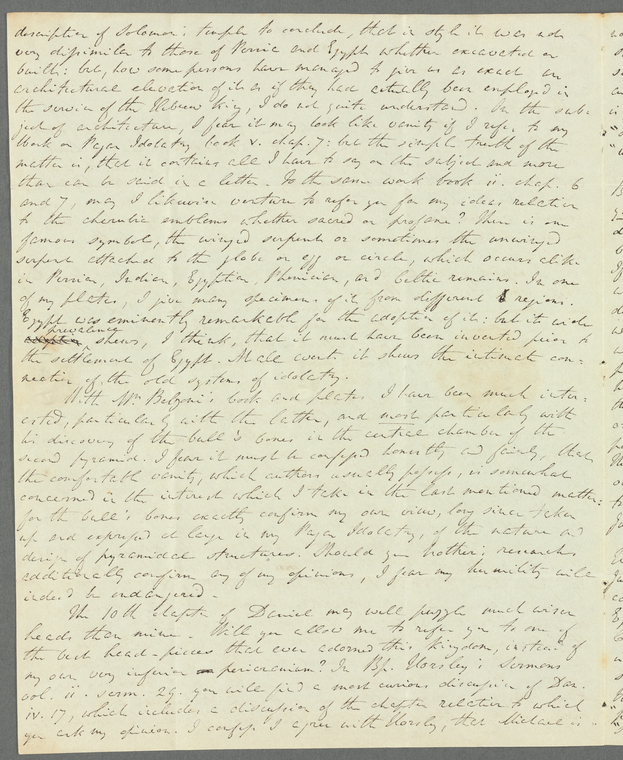 description of Solomon's temple to conclude, that in style it was not
very dissimilar to those of Persia and Egypt whether excavated or
built: but, how some persons have managed to give us as exact an
architectural elevation of it as if they had actually been employed in
the service of the Hebrew king, I do not quite understand. On the sub-
ject of architecture, I fear it may look like vanity if I refer to my
Work on Pagan Idolatry book v. chap. 7: but the simple truth of the
matter is, that it contains all I have to say on the subject and more
than can be said in a letter. To the same work book ii. chap. 6
and 7, may I likewise venture to refer you for my ideas relative
to the cherubic emblems whether sacred or profane? There is one
famous symbol, the winged serpent or sometimes the unwinged
serpent attached to the globe or egg or circle, which occurs alike
in Persian, Indian, Egyptian, Phenician, and Celtic remains. In one
of my plates, I give many specimens of it from different regions.
Egypt was eminently remarkable for the adoption of it: but its wide
prevalence
shews, I think, that it must have been invented prior to
the settlement of Egypt. At all events it shews the intimate con-
nection of the old systems of idolatry.
With Mr. Belzoni's book and plates I have been much inter-
ested, particularly with the latter, and most particularly with
his discovery of the bull's bones in the central chamber of the
second pyramid. I fear it must be confessed honestly and fairly, that
the comfortable vanity, which authors usually possess, is somewhat
concerned in the interest which I take in the last mentioned matter:
for the bull's bones exactly confirm my own view, long since taken
up and expressed at large in my Pagan Idolatry, of the nature and
design of pyramidal structures. Should your brother's researches
additionally confirm any of my opinions, I fear my humility will
indeed be endangered.
The 10th chapter of Daniel may well puzzle much wiser
heads than mine. Will you allow me to refer you to one of
the best head-pieces that ever adorned this kingdom, instead of
my own very inferior pericranium? In Bp. Horsley's Sermons
vol. ii. serm. 29. you will find a most curious discussion of Dan.
iv. 17, which includes a discussion of the chapter relative to which
you ask my opinion. I confess I agree with Horsley, that Michael is